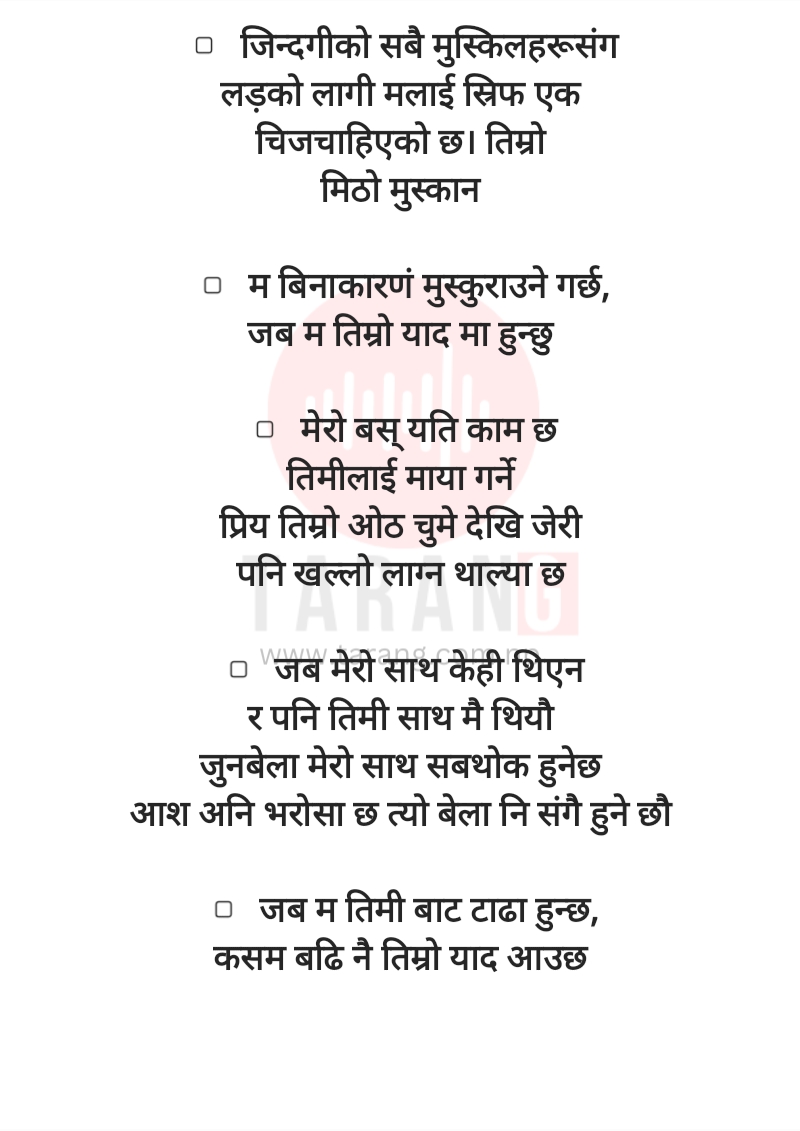 ▢ जिन्दगीको सबै मुस्किलहरूसंग
लड़को लागी मलाई स्रिफ एक
चिजचाहिएको छ। तिम्रो
मिठो मुस्कान
▢ म बिनाकारणं मुस्कुराउने गर्छ,
जब म तिम्रो याद मा हुन्छु
▢ मेरो बस् यति काम छ
तिमीलाई माया गर्ने
प्रिय तिम्रो ओठ चुमे देखि जेरी
पनि खल्लो लाग्न थाल्या छ
TARANG
www.tarang.com.np
▢ जब मेरो साथ केही थिएन
र पनि तिमी साथ मै थियौ
जुनबेला मेरो साथ सबथोक हुनेछ
आश अनि भरोसा छ त्यो बेला नि संगै हुने छौ
▢ जब म तिमी बाट टाढा हुन्छ,
कसम बढि नै तिम्रो याद आउछ